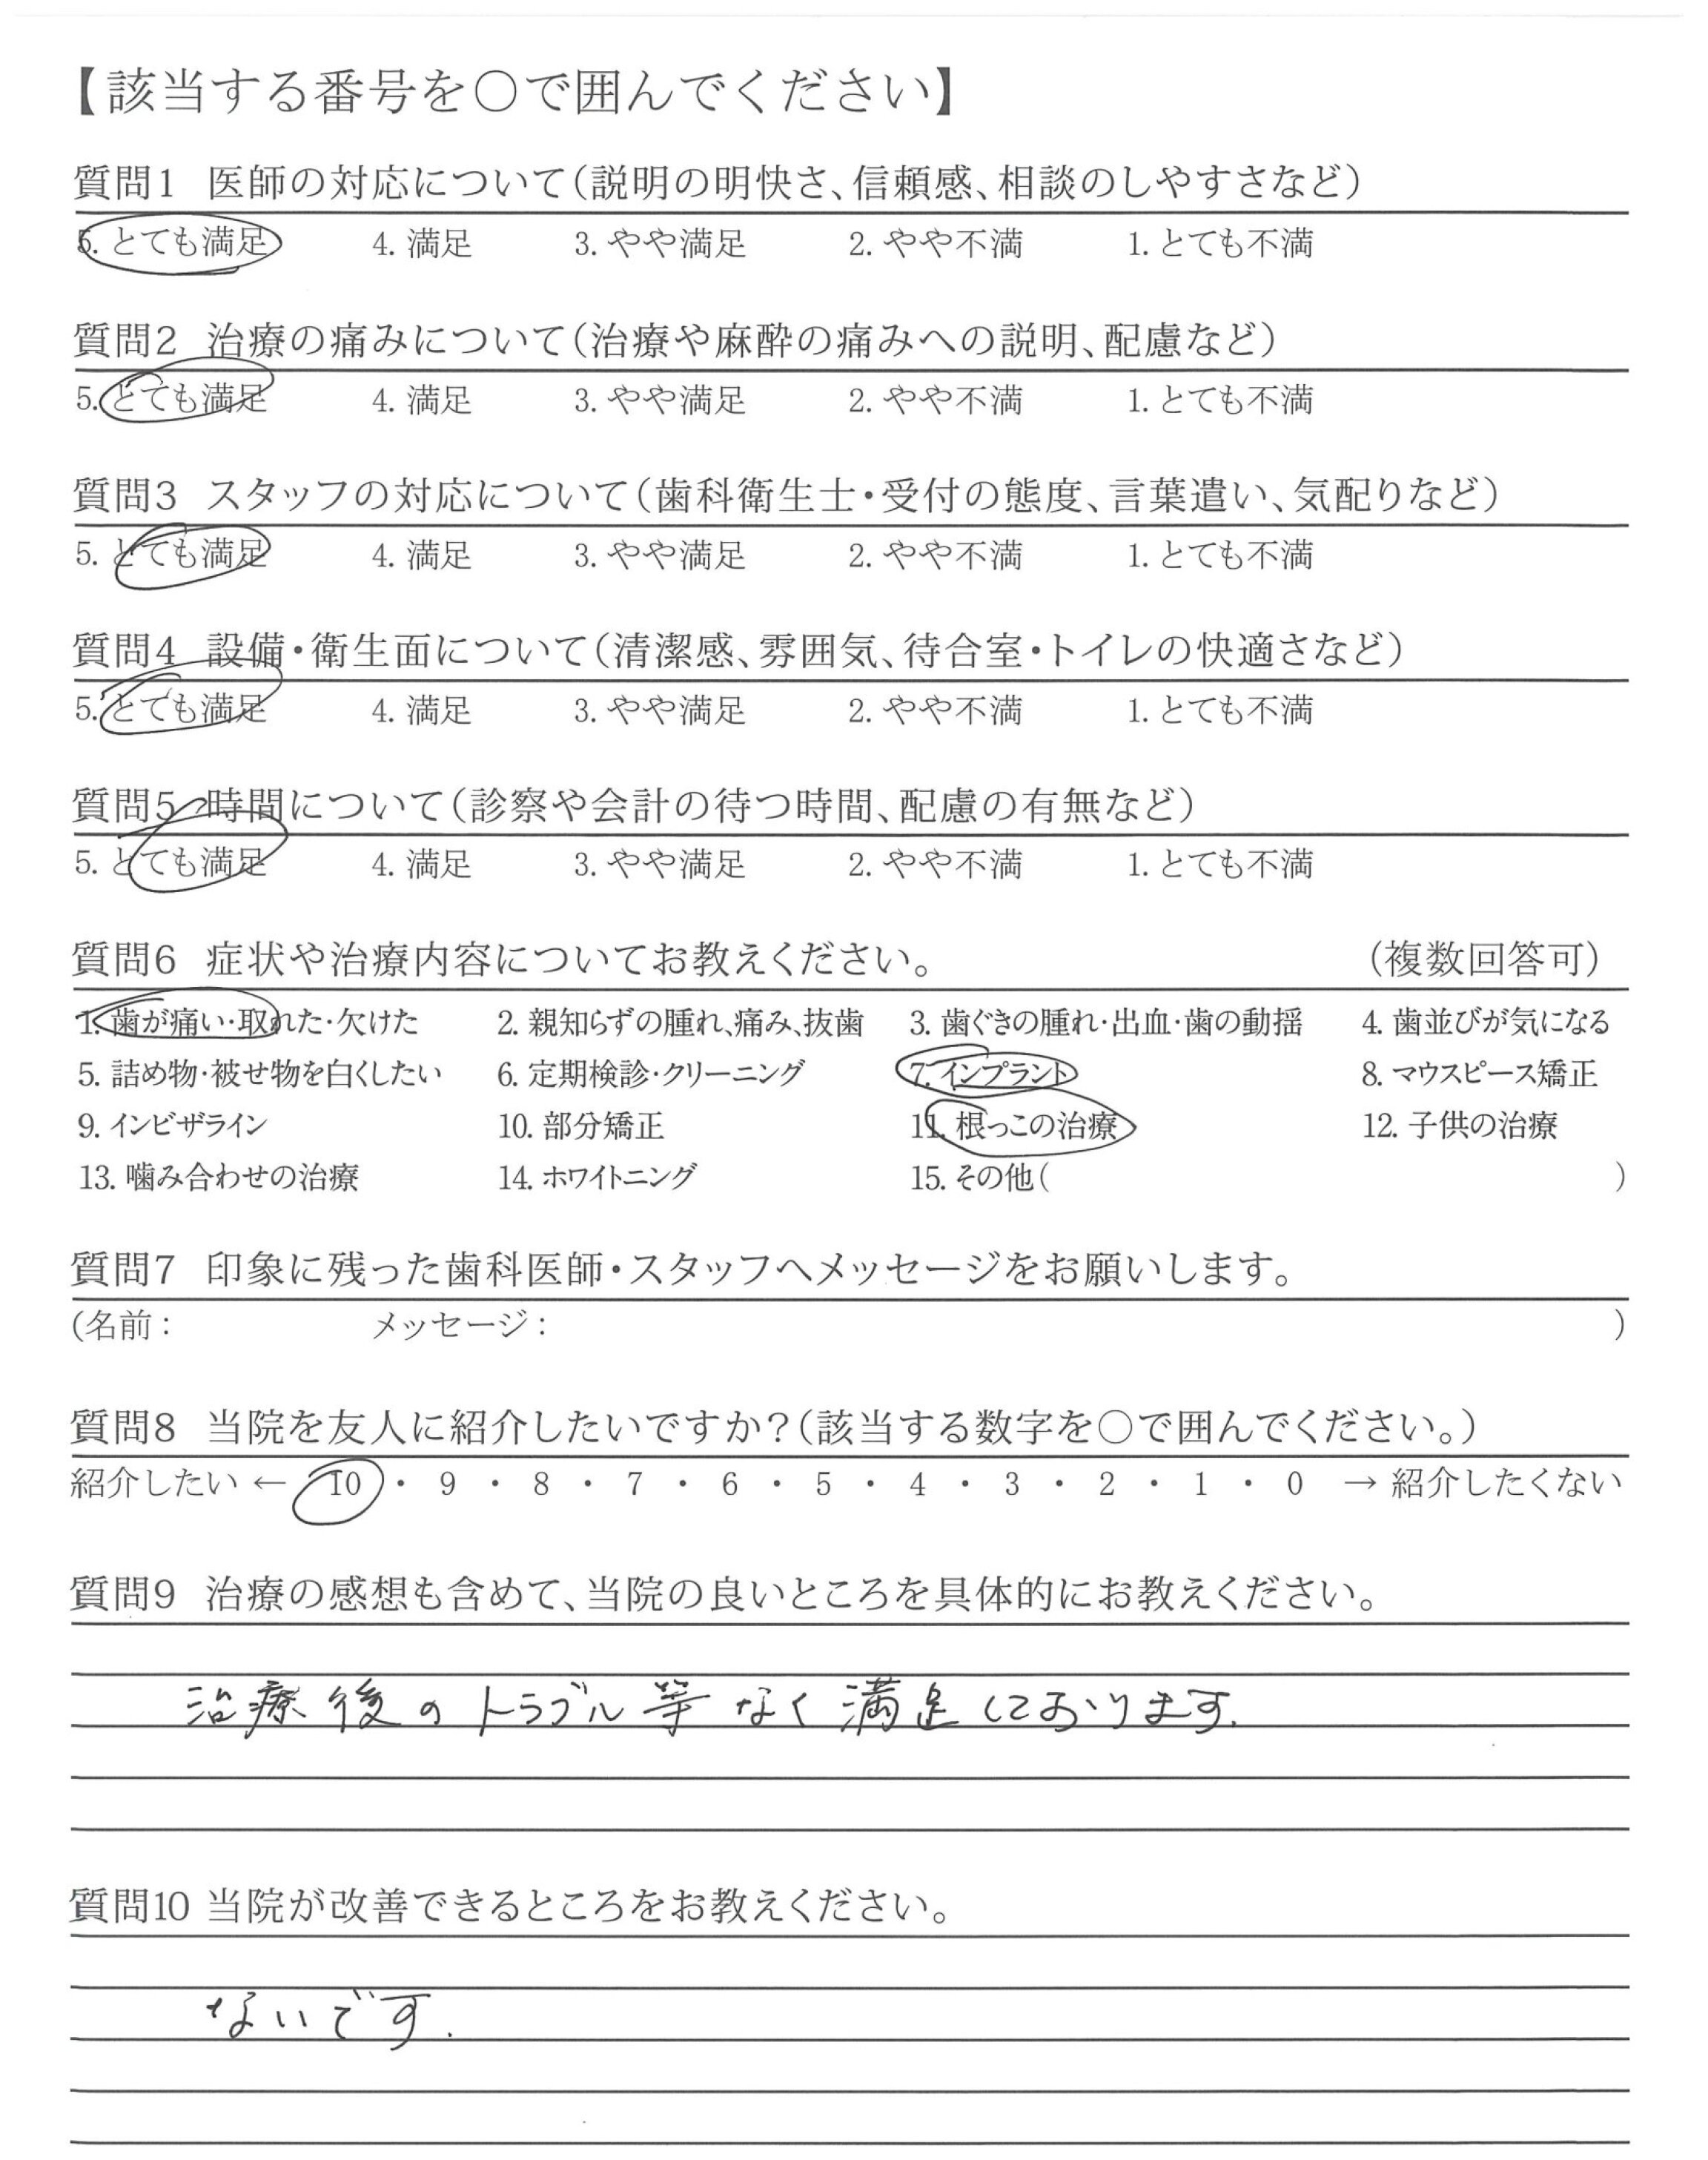 【該当する番号を○で囲んでください】
質問1 医師の対応について（説明の明快さ、信頼感、相談のしやすさなど）
5. とても満足 4. 満足 3. やや満足 2. やや不満 1. とても不満
質問2 治療の痛みについて（治療や麻酔の痛みへの説明、配慮など）
5. とても満足 4. 満足 3. やや満足 2. やや不満 1. とても不満
質問3 スタッフの対応について（歯科衛生士・受付の態度、言葉遣い、気配りなど）
5. とても満足 4. 満足 3. やや満足 2. やや不満 1. とても不満
質問4 設備・衛生面について（清潔感、雰囲気、待合室・トイレの快適さなど）
5. とても満足 4. 満足 3. やや満足 2. やや不満 1. とても不満
質問5 時間について（診察や会計の待つ時間、配慮の有無など）
5. とても満足 4. 満足 3. やや満足 2. やや不満 1. とても不満
質問6 症状や治療内容についてお教えください。 （複数回答可）
1. 歯が痛い・取れた・欠けた 2. 親知らずの腫れ、痛み、抜歯 3. 歯ぐきの腫れ・出血・歯の動揺 4. 歯並びが気になる
5. 詰め物・被せ物を白くしたい 6. 定期検診・クリーニング 7. インプラント 8. マウスピース矯正
9. インビザライン 10. 部分矯正 11. 根っこの治療 12. 子供の治療
13. 噛み合わせの治療 14. ホワイトニング 15. その他（ ）
質問7 印象に残った歯科医師・スタッフへメッセージをお願いします。
（名前： メッセージ： ）
質問8 当院を友人に紹介したいですか？（該当する数字を○で囲んでください。）
紹介したい ← 10 ・ 9 ・ 8 ・ 7 ・ 6 ・ 5 ・ 4 ・ 3 ・ 2 ・ 1 ・ 0 → 紹介したくない
質問9 治療の感想も含めて、当院の良いところを具体的にお教えください。
治療後のトラブル等なく満足しております.
質問10 当院が改善できるところをお教えください。
ないです.